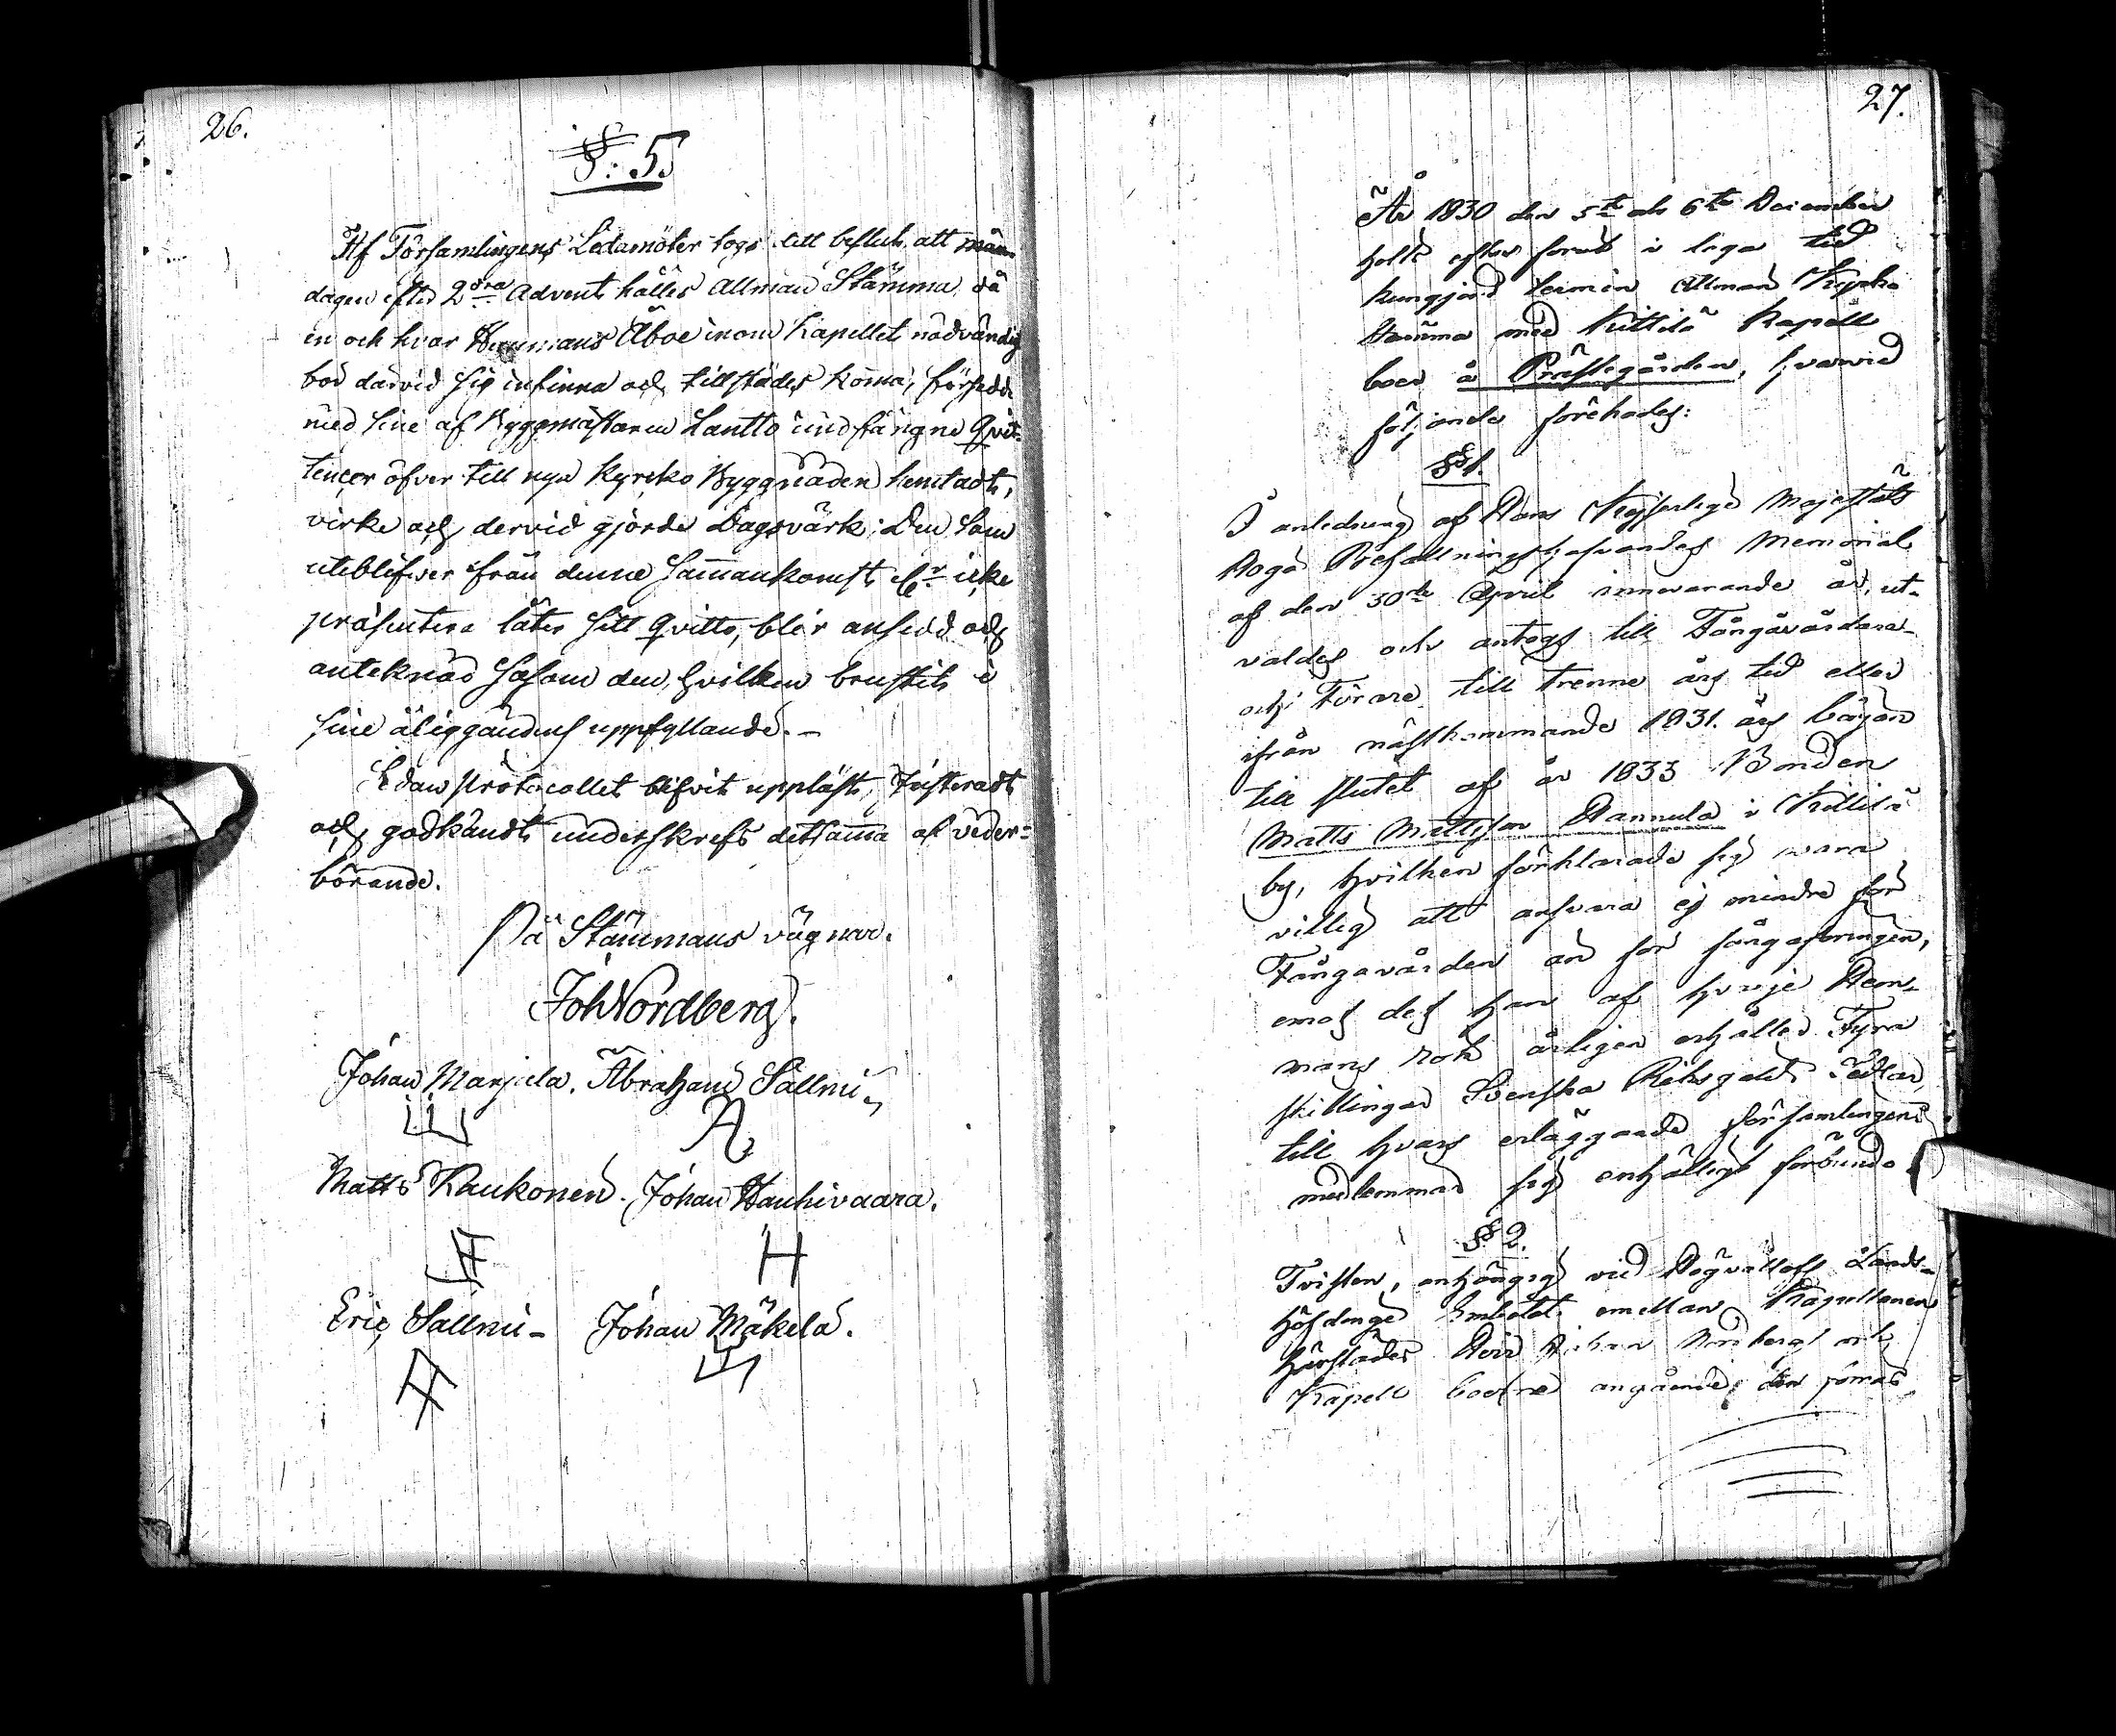 26.
§: 5
Af Församlingens Ledamöter togs till beslut, att mån-
dagen efter 2dra Advent hålles Allmän Stämma, då
en och hvar Hemmans Åboe inom Kapellet nödvändig
bör därvid sig infinna och tillstädes komma, försedd
med sine af Byggmästaren Lantto undfångne Qvit-
tencer öfver till nya Kyrko Byggnaden hemtadt,
virke och dervid gjorde Dagsvärk; Den som
uteblifver från denne Sammankomst elr icke
präsentera låter sitt Qvitto, blir ansedd och
anteknad såsom den, hvilken brustit i
sine åliggandens uppfyllande. –
Sedan Protocollet blifvit uppläst, Justeradt
och godkändt underskrefs detsamma af veder=
börande.
På Stämmans vägnar.
Joh Nordberg.
Johan Marjiela. Abraham Sallni
A
Matts Kaukonen. Johan Hanhivaara.
H
Eric Sallni – Johan Mäkelä.
27.
År 1830 den 5te och 6te December
holts efter förut i laga tid
kungjord termin Allmän Kyrko
Stämma med Kittilä Kapell
boer å Prästegården, hvarvid
följande förehades:
§ 1.
I anledning af Hans Kejserliga Majestäts
Höga Befallningshafvandes Memorial
af den 30de April innevarande år, ut-
valdes och antogs till Fångavårdare
och Förare till trenne års tid eller
ifrån nästkommande 1831. års början
till slutet af år 1833 Bonden
Matts Mattsson Hannula i Kittilä
by, hvilken förklarade sig wara
villig att ansvara ej mindre för
Fångavården än för fångaföringen,
emot det han af hvarje Hem-
mans rök årligen erhåller Fyra
skillingar Svenska Riksgäld Sedlar,
till hvars erläggande församlingens
medlemmar sig enhälligt förbundo
§ 2.
Tvisten, anhängig vid Högvällofl Lands-
höfdinge Embetet emellan Kapellanen
härstädes Herr Johan Nordberg och
Kapell boerne angående den förras